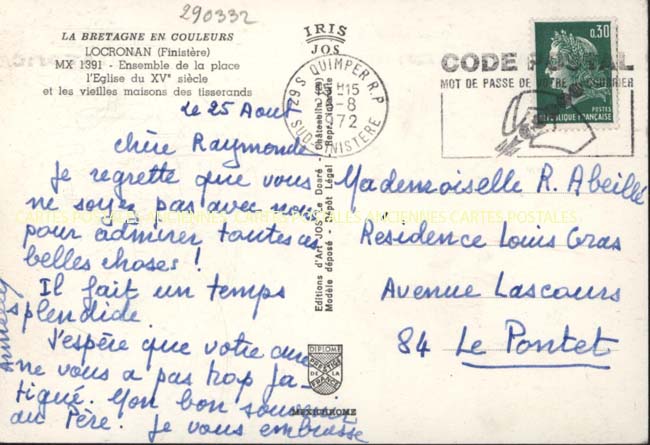 290332
LA BRETAGNE EN COULEURS
LOCRONAN (Finistère)
MX 1391 - Ensemble de la place
l'Eglise du XVe siècle
et les vieilles maisons des tisserands
IRIS
JOS
29 S QUIMPER R.P
15 H-15
-8
1972
SUD-FINISTERE
0,30
POSTES
REPUBLIQUE FRANÇAISE
CODE POSTAL
MOT DE PASSE DE VOTRE COURRIER
le 25 Août
chère Raymonde
Je regrette que vous
ne soyez pas avec nous
pour admirer toutes ces
belles choses !
Il fait un temps
splendide.
J'espère que votre cure
ne vous a pas trop fa-
tigué. Mon bon souvenir
au Père. Je vous embrasse
Editions d'Art JOS Le Doaré - Châteaulin
Modèle déposé - Dépôt Légal - Repr. interdite
DIPLOME
PRESTIGE
DE LA
FRANCE
MEXICHROME
Mademoiselle R. Abeille
Residence Louis Gras
Avenue Lascours
84 Le Pontet
CARTES POSTALES ANCIENNES CARTES POSTALES ANCIENNES CARTES POSTALES